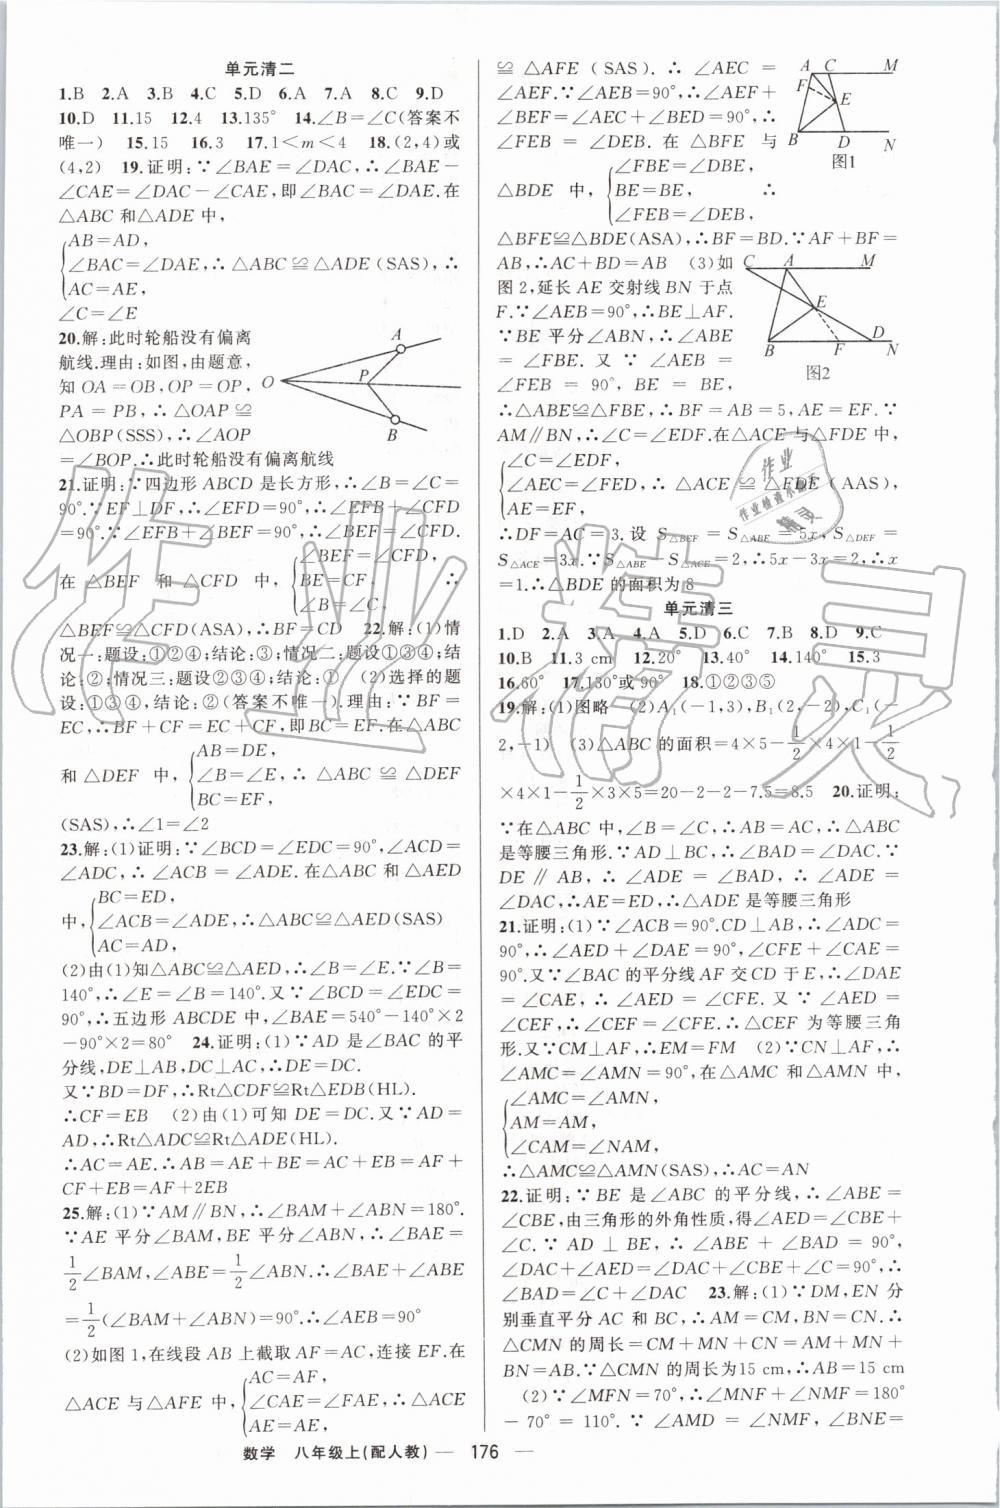 单元清二
1.B 2.A 3.B 4.C 5.D 6.A 7.A 8.C 9.D
10.D 11.15 12.4 13.135° 14.∠B=∠C(答案不
唯一) 15.15 16.3 17.1<m<4 18.(2,4)或
(4,2) 19.证明:∵∠BAE=∠DAC,∴∠BAE-
∠CAE=∠DAC-∠CAE,即∠BAC=∠DAE.在
△ABC和△ADE中,
AB=AD,
∠BAC=∠DAE,∴△ABC≌△ADE(SAS),∴
AC=AE,
∠C=∠E
20.解:此时轮船没有偏离
航线.理由:如图,由题意,
知OA=OB,OP=OP,
PA=PB,∴△OAP≌
△OBP(SSS),∴∠AOP
=∠BOP.∴此时轮船没有偏离航线
O
A
P
B
21.证明:∵四边形ABCD是长方形,∴∠B=∠C=
90°.∵EF⊥DF,∴∠EFD=90°.∴∠EFB+∠CFD=
90°.∵∠EFB+∠BEF=90°,∴∠BEF=∠CFD.
∠BEF=∠CFD,
在△BEF和△CFD中,BE=CF,∴
∠B=∠C,
△BEF≌△CFD(ASA),∴BF=CD 22.解:(1)情
况一:题设:①②④;结论:③;情况二:题设①③④;结论:
②;情况三:题设②③④;结论:① (2)选择的题
设:①③④,结论:②(答案不唯一).理由:∵BF=
EC,∴BF+CF=EC+CF,即BC=EF.在△ABC
AB=DE,
和△DEF中,∠B=∠E,∴△ABC≌△DEF
BC=EF,
(SAS),∴∠1=∠2
23.解:(1)证明:∵∠BCD=∠EDC=90°,∠ACD=
∠ADC,∴∠ACB=∠ADE.在△ABC和△AED
BC=ED,
中,∠ACB=∠ADE,∴△ABC≌△AED(SAS)
AC=AD,
(2)由(1)知△ABC≌△AED,∴∠B=∠E.∵∠B=
140°,∴∠E=∠B=140°.又∵∠BCD=∠EDC=
90°,∴五边形ABCDE中,∠BAE=540°-140°×2
-90°×2=80° 24.证明:(1)∵AD是∠BAC的平
分线,DE⊥AB,DC⊥AC,∴DE=DC.
又∵BD=DF,∴Rt△CDF≌Rt△EDB(HL).
∴CF=EB (2)由(1)可知DE=DC.又∵AD=
AD,∴Rt△ADC≌Rt△ADE(HL).
∴AC=AE.∴AB=AE+BE=AC+EB=AF+
CF+EB=AF+2EB
25.解:(1)∵AM∥BN,∴∠BAM+∠ABN=180°.
∵AE平分∠BAM,BE平分∠ABN,∴∠BAE=
1/2∠BAM,∠ABE=1/2∠ABN.∴∠BAE+∠ABE
=1/2(∠BAM+∠ABN)=90°.∴∠AEB=90°
(2)如图1,在线段AB上截取AF=AC,连接EF.在
AC=AF,
△ACE与△AFE中,∠CAE=∠FAE,∴△ACE
AE=AE,
≌△AFE(SAS).∴∠AEC=
∠AEF.∵∠AEB=90°,∴∠AEF+
∠BEF=∠AEC+∠BED=90°,∴
∠FEB=∠DEB.在△BFE与
∠FBE=∠DBE,
△BDE中,BE=BE,∴
∠FEB=∠DEB,
A C M
F
E
B D N
图1
△BFE≌△BDE(ASA),∴BF=BD.∵AF+BF=
AB,∴AC+BD=AB (3)如
图2,延长AE交射线BN于点
F.∵∠AEB=90°,∴BE⊥AF.
∵BE平分∠ABN,∴∠ABE
=∠FBE.又∵∠AEB=
∠FEB=90°,BE=BE,
C A M
E
B F D N
图2
∴△ABE≌△FBE,∴BF=AB=5,AE=EF.∵
AM∥BN,∴∠C=∠EDF.在△ACE与△FDE中,
∠C=∠EDF,
∠AEC=∠FED,∴△ACE≌△FDE(AAS),
AE=EF,
∴DF=AC=3.设S△BEF=S△ABE=5x,S△DEF=
S△ACE=3x.∵S△ABE-S△ACE=2,∴5x-3x=2,∴x
=1.∴△BDE的面积为8
单元清三
1.D 2.A 3.A 4.A 5.D 6.C 7.B 8.D 9.C
10.B 11.3 cm 12.20° 13.40° 14.140° 15.3
16.60° 17.130°或90° 18.①②③⑤
19.解:(1)图略 (2)A₁(-1,3),B₁(2,-2),C₁(-
2,-1) (3)△ABC的面积=4×5-1/2×4×1-1/2
×4×1-1/2×3×5=20-2-2-7.5=8.5 20.证明:
∵在△ABC中,∠B=∠C,∴AB=AC,∴△ABC
是等腰三角形.∵AD⊥BC,∴∠BAD=∠DAC.∵
DE∥AB,∴∠ADE=∠BAD,∴∠ADE=
∠DAC,∴AE=ED,∴△ADE是等腰三角形
21.证明:(1)∵∠ACB=90°.CD⊥AB,∴∠ADC=
90°,∴∠AED+∠DAE=90°,∠CFE+∠CAE=
90°.又∵∠BAC的平分线AF交CD于E,∴∠DAE
=∠CAE,∴∠AED=∠CFE.又∵∠AED=
∠CEF,∴∠CEF=∠CFE.∴△CEF为等腰三角
形.又∵CM⊥AF,∴EM=FM (2)∵CN⊥AF,∴
∠AMC=∠AMN=90°,在△AMC和△AMN中,
∠AMC=∠AMN,
AM=AM,
∠CAM=∠NAM,
∴△AMC≌△AMN(SAS),∴AC=AN
22.证明:∵BE是∠ABC的平分线,∴∠ABE=
∠CBE,由三角形的外角性质,得∠AED=∠CBE+
∠C.∵AD⊥BE,∴∠ABE+∠BAD=90°,
∠DAE+∠AED=∠DAC+∠CBE+∠C=90°,∴
∠BAD=∠C+∠DAC 23.解:(1)∵DM,EN分
别垂直平分AC和BC,∴AM=CM,BN=CN.∴
△CMN的周长=CM+MN+CN=AM+MN+
BN=AB.∵△CMN的周长为15 cm,∴AB=15 cm
(2)∵∠MFN=70°,∴∠MNF+∠NMF=180°
-70°=110°.∵∠AMD=∠NMF,∠BNE=
数学 八年级上(配人教) — 176 —
作业精灵
作业
作业检查小助手
精灵